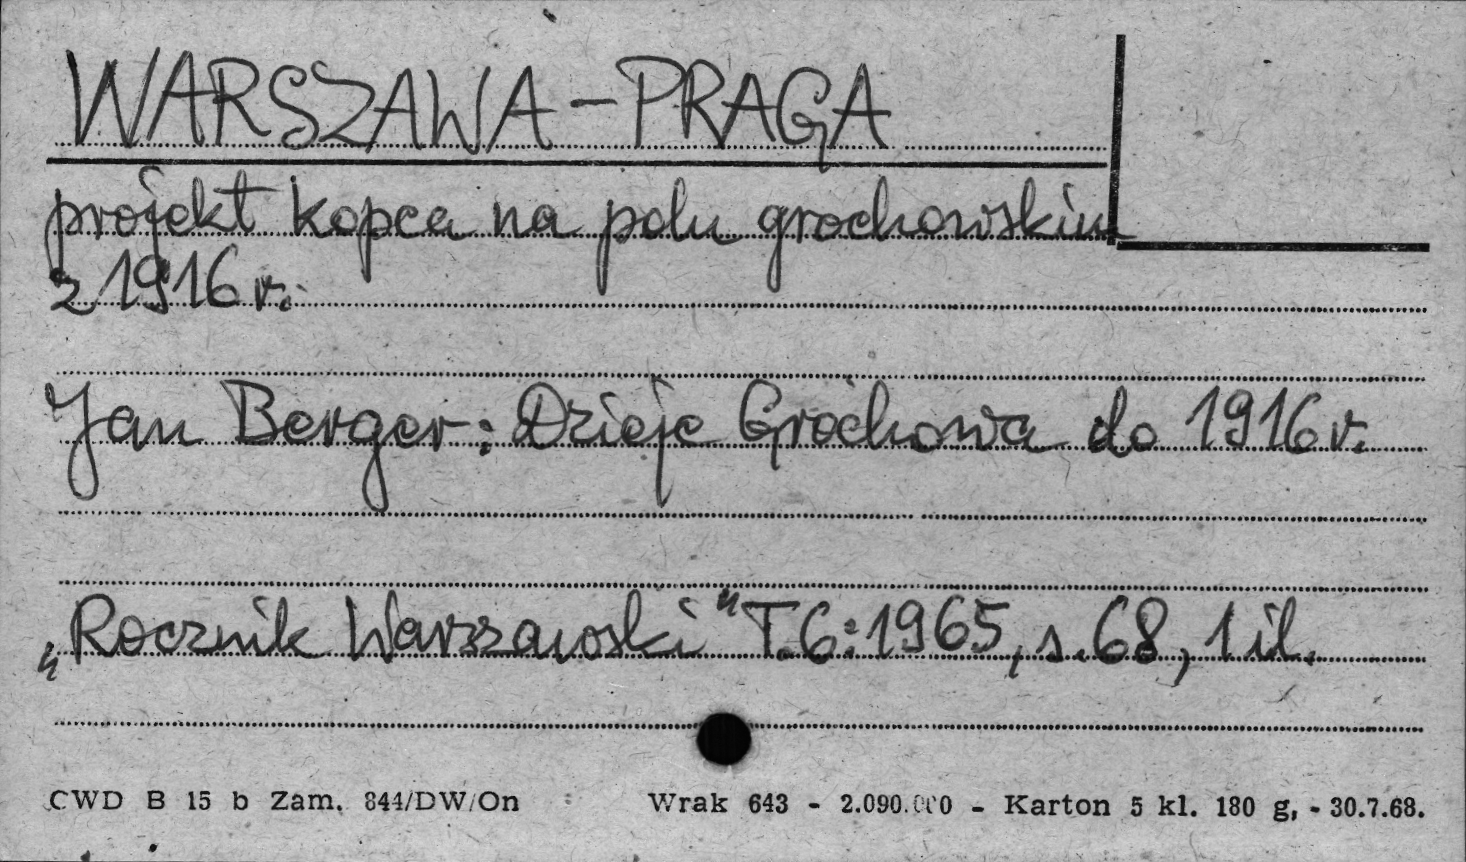 WARSZAWA-PRAGA
projekt kopca na polu grochowskim
z 1916 r.
Jan Berger: Dzieje Grochowa do 1916 r.
„Rocznik Warszawski" T.6:1965, s.68, 1 il.
CWD B 15 b Zam. 844/DW/On Wrak 643 - 2.090.000 - Karton 5 kl. 180 g, - 30.7.68.